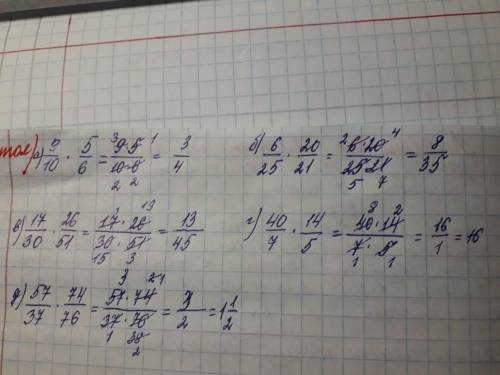 а) 9/10 · 5/6 = 9·5/10·6 = 3/4 б) 6/25 · 20/21 = 6·20/25·21 = 8/35
в) 17/30 · 26/51 = 17·26/30·51 = 13/45 г) 40/7 · 14/5 = 40·14/7·5 = 16/1 = 16
д) 57/37 · 74/76 = 57·74/37·76 = 3/2 = 1 1/2